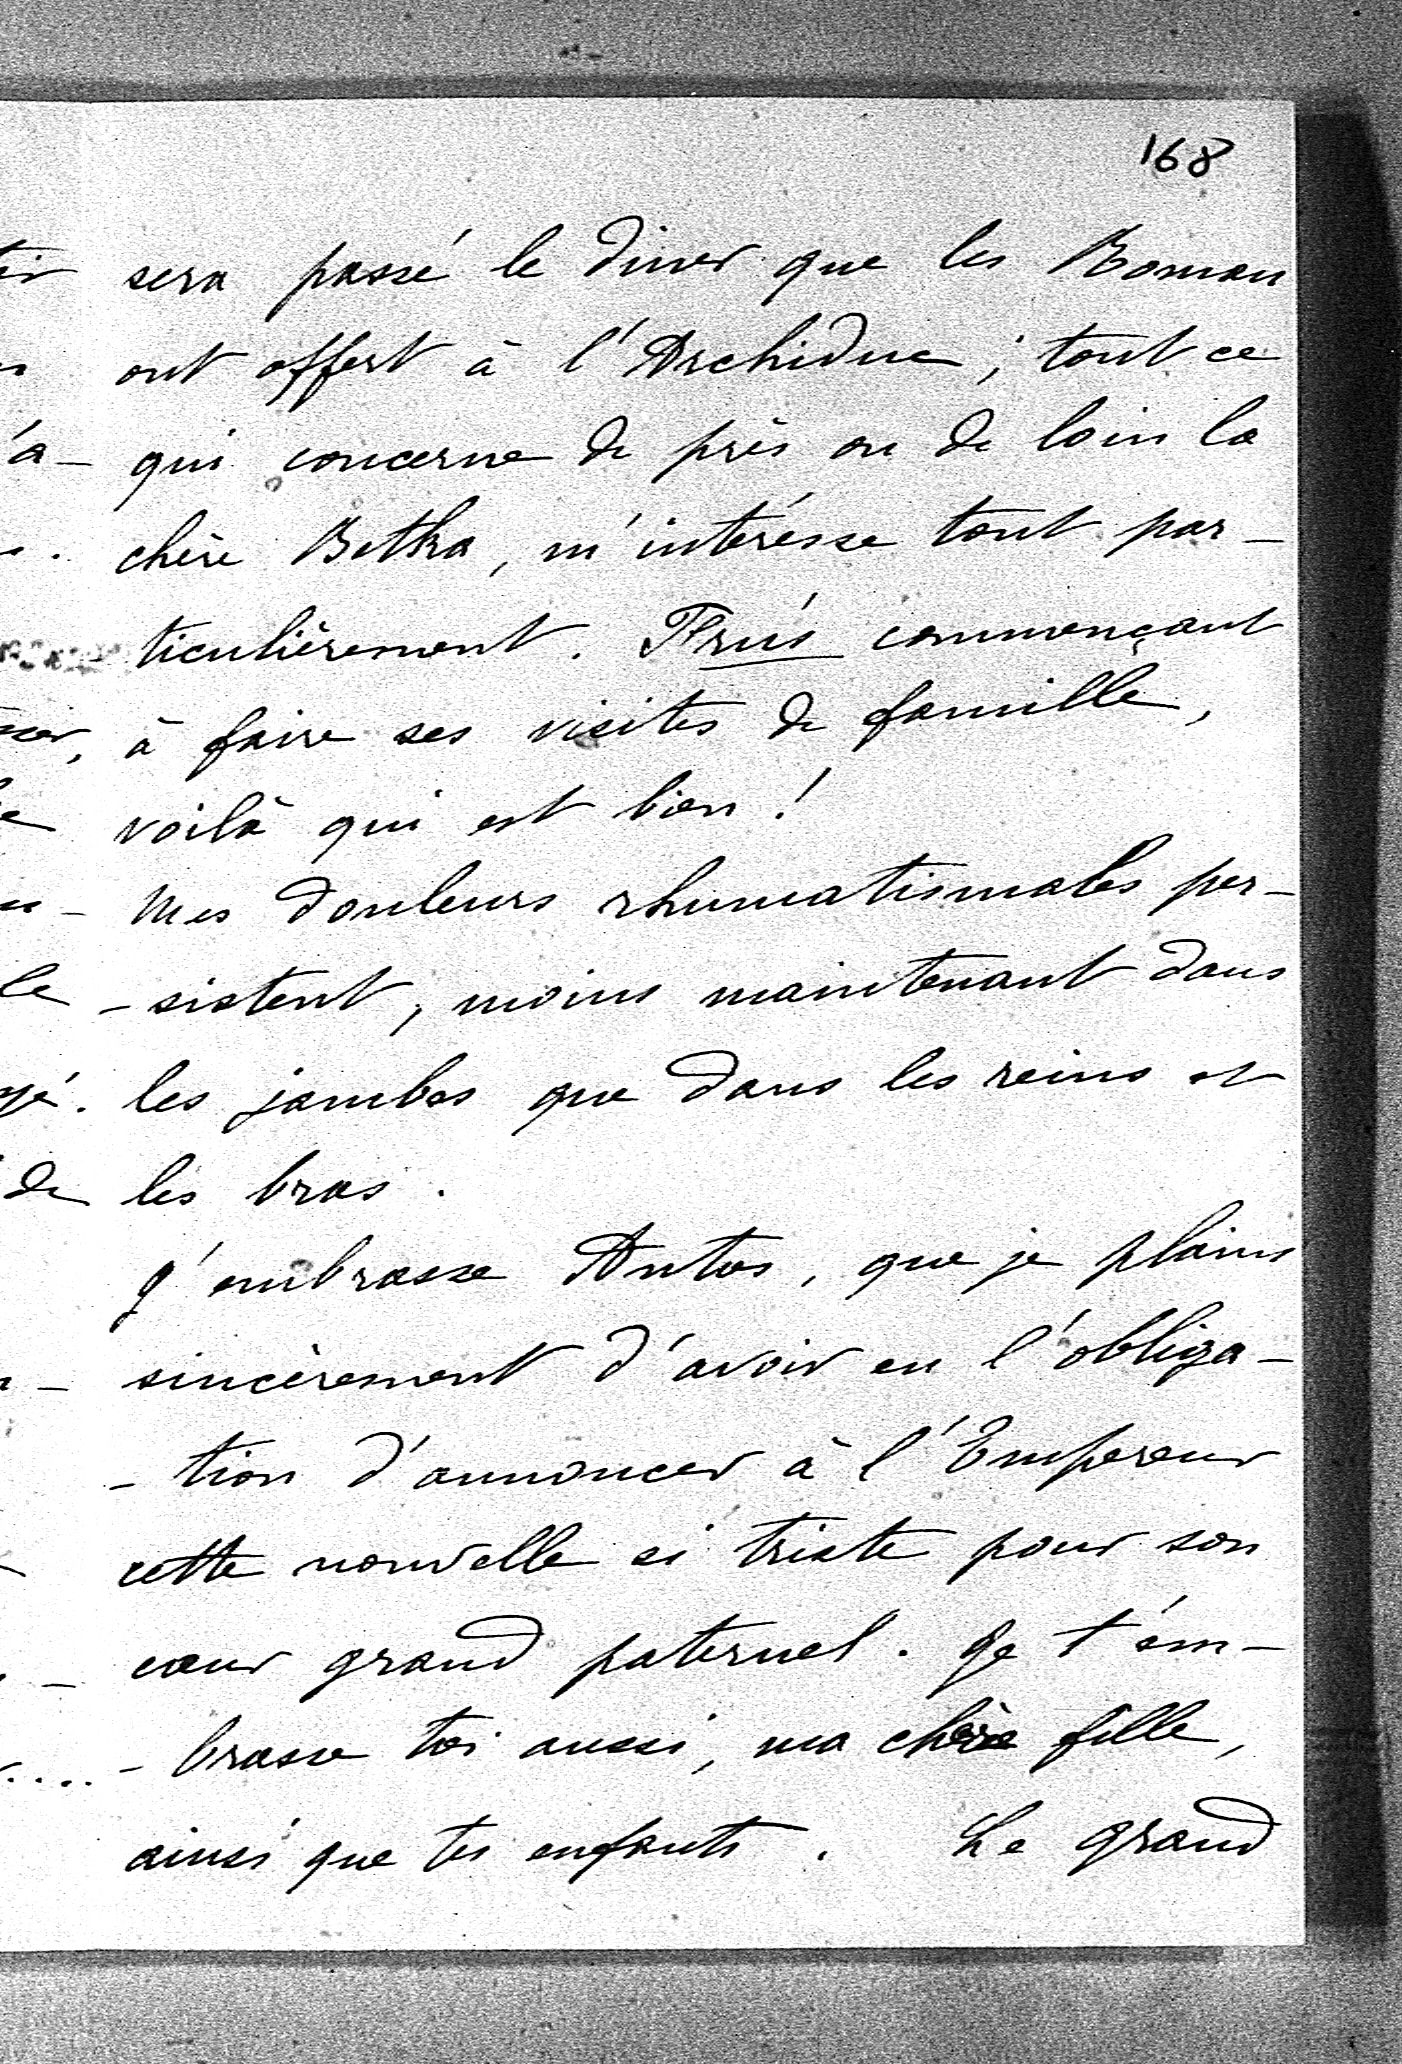 168
sera passé le diner que les Roman
ont offert à l'Archiduc; tout ce
qui concerne de près ou de loin la
chère Betka, m'intéresse tout par-
ticulièrement. Fruś commençant
à faire ses visites de famille,
voilà qui est bien!
Mes douleurs rhumatismales per-
-sistent, moins maintenant dans
les jambes que dans les reins et
les bras.
J'embrasse Antos, que je plains
sincèrement d'avoir eu l'obliga-
-tion d'annoncer à l'Empereur
cette nouvelle si triste pour son
cœur grand paternel. Je t'em-
-brasse toi aussi, ma chère fille,
ainsi que tes enfants. Le grand